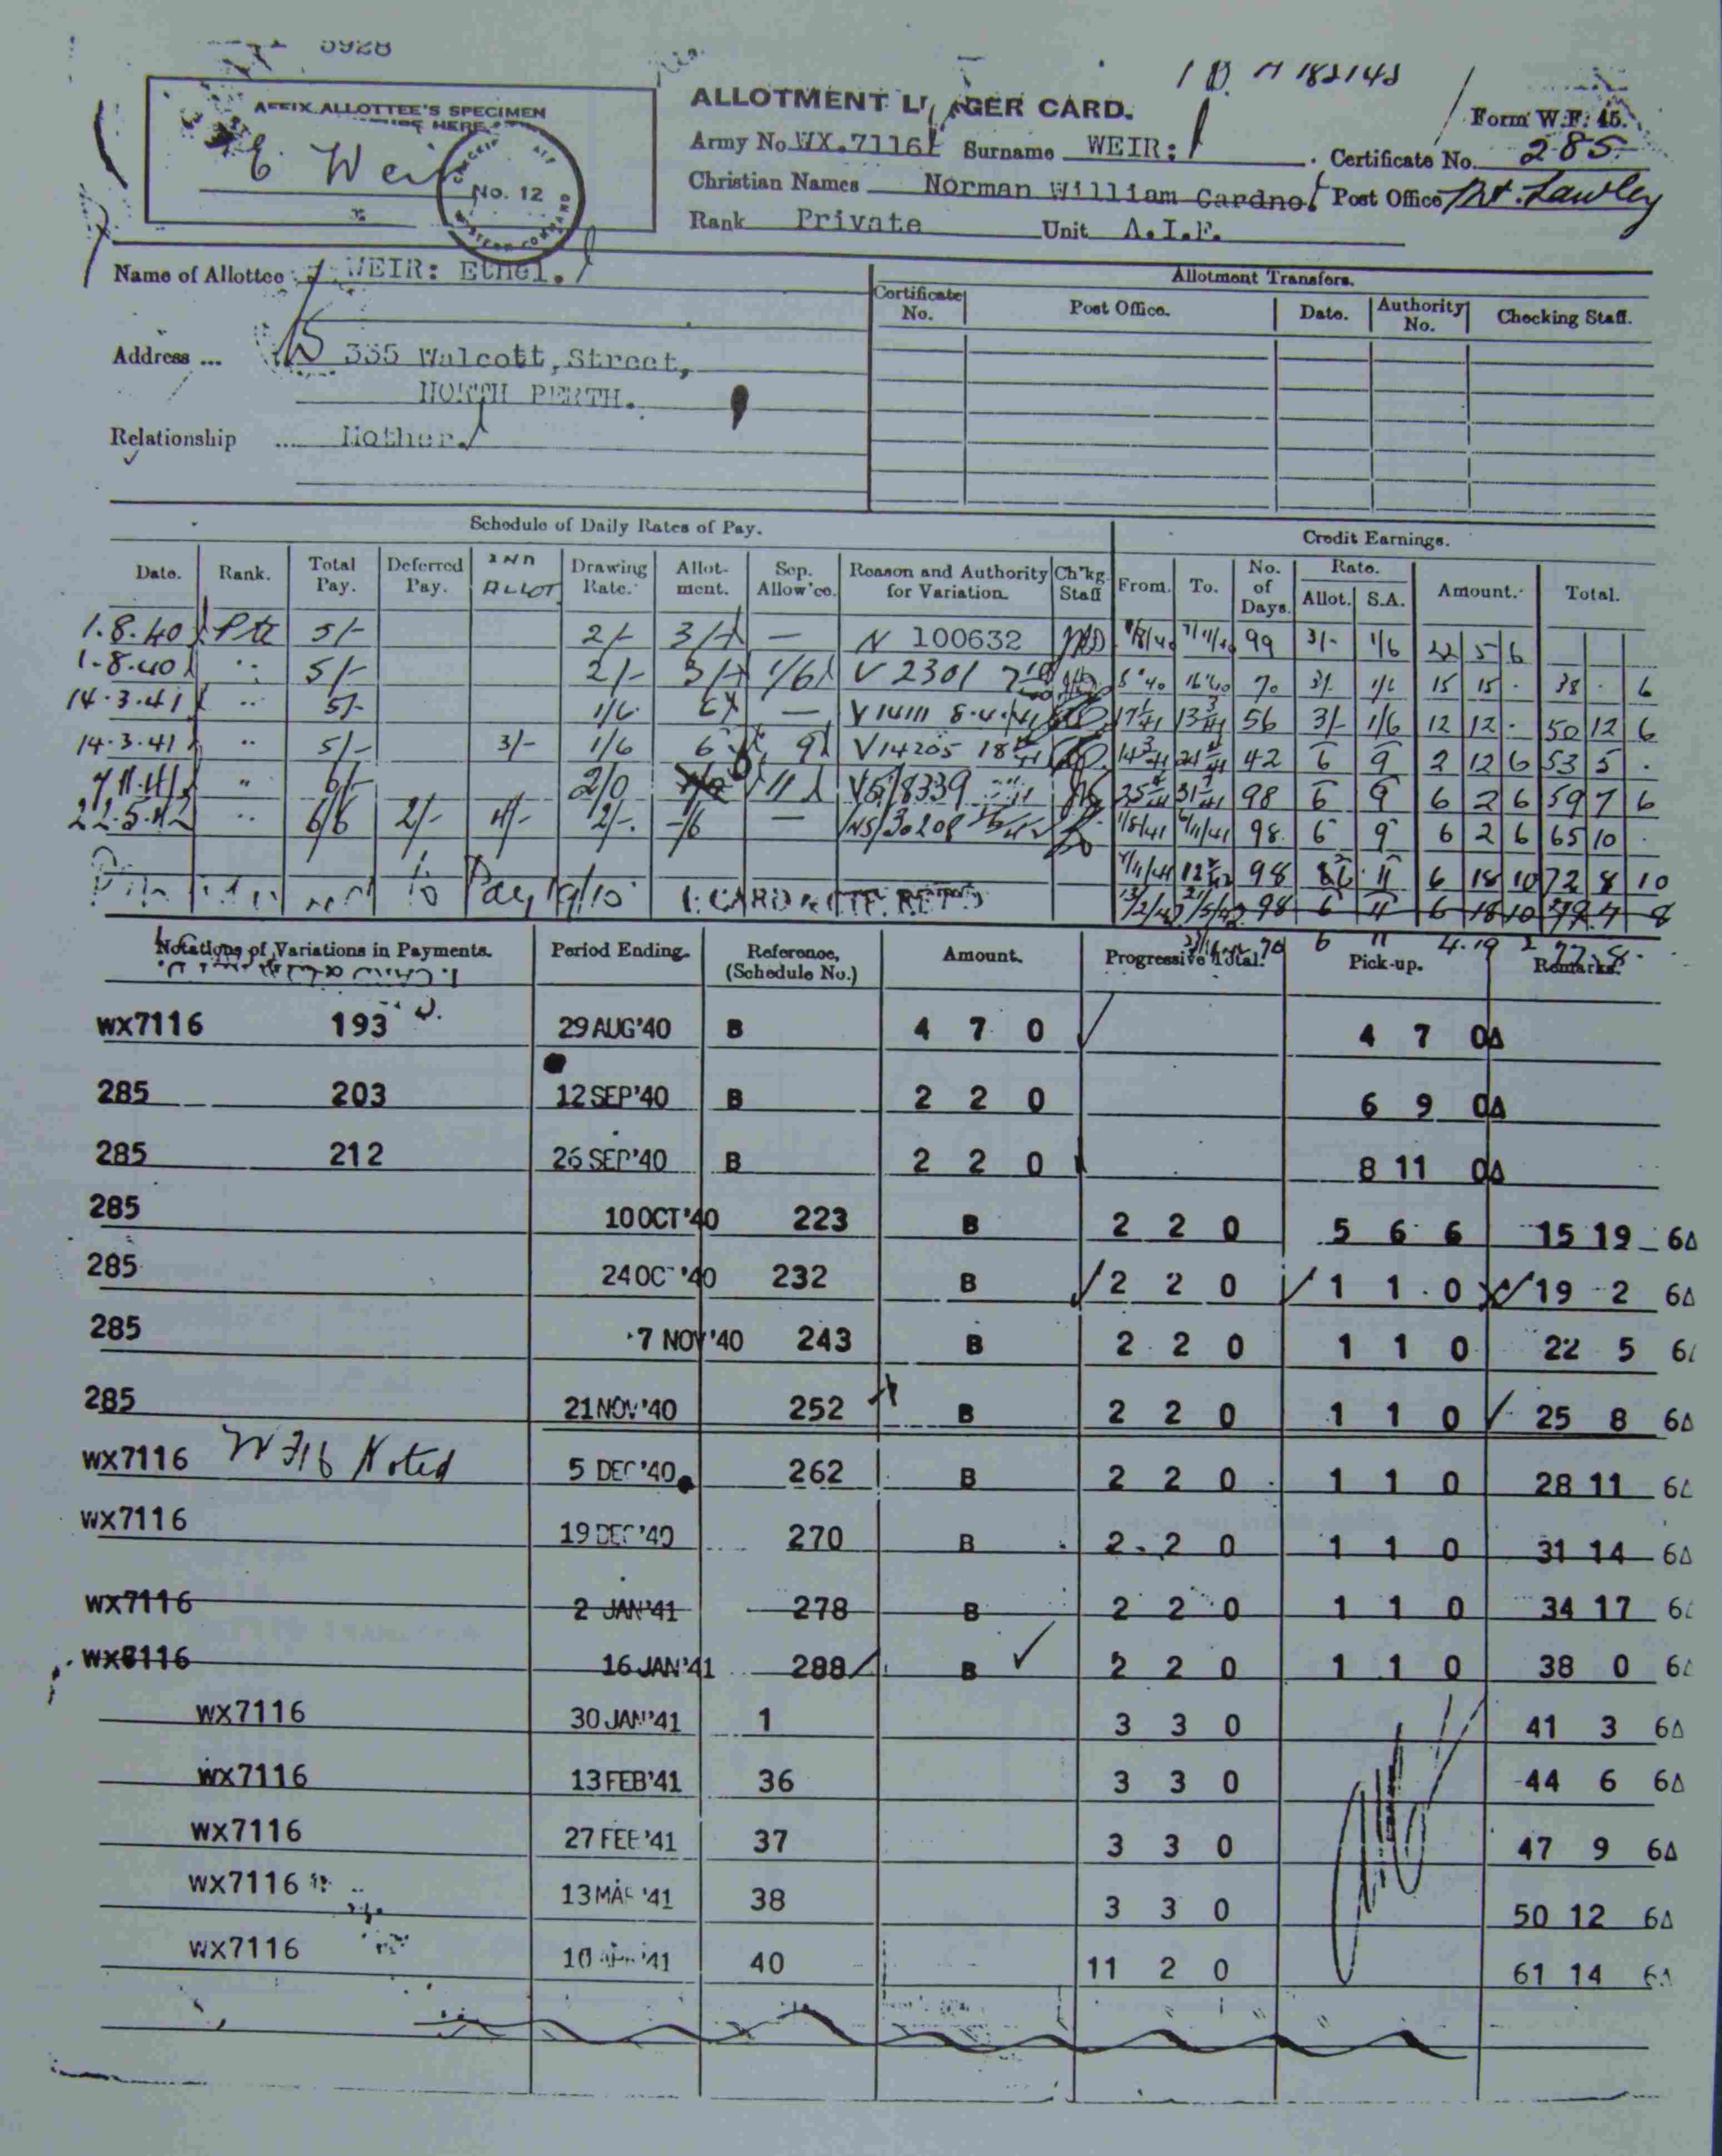 5928
1 D. A 182142
AFFIX ALLOTTEE'S SPECIMEN
HERE
E. Weir
No. 12
ALLOTMENT LEDGER CARD.
Form W.F. 45.
Army No. WX.7116 Surname WEIR: Certificate No. 285
Christian Names Norman William Cardno. Post Office Mt. Lawley
Rank Private Unit A.I.F.
Name of Allottee WEIR: Ethel.
Address ... 335 Walcott, Street,
NORTH PERTH.
Relationship .... Mother.
Allotment Transfers.
Certificate No. Post Office. Date. Authority No. Checking Staff.
Schedule of Daily Rates of Pay. Credit Earnings.
Date. Rank. Total Pay. Deferred Pay. 2ND ALLOT Drawing Rate. Allotment. Sep. Allow'ce. Reason and Authority for Variation. Ch'kg Staff From. To. No. of Days. Rate. Allot. S.A. Amount. Total.
1.8.40 Pte 5/- 2/- 3/- — N 100632 99 3/- 1/6 22 5 6
1-8-40 " 5/- 2/- 3/- 1/6 V 2301 70 3/- 1/6 15 15 · 38 · 6
14.3.41 " 5/- 1/6 6 — V14111 8.4.41 56 3/- 1/6 12 12 · 50 12 6
14.3.41 " 5/- 3/- 1/6 6 9 V14205 42 6 9 2 12 6 53 5 ·
7.11.41 " 6/- 2/0 11 98 6 9 6 2 6 59 7 6
22.5.42 " 6/6 2/- 4/- 2/- -/6 — 1/8/41 6/11/41 98 6 9 6 2 6 65 10 ·
7/11/41 98 6 11 6 18 10 72 8 10
to Pay 98 6 11 6 18 10 79 7 8
70 6 11 4.19 2 77.8.
Notations of Variations in Payments. Period Ending. Reference, (Schedule No.) Amount. Progressive Total. Pick-up. Remarks.
WX7116 193 29 AUG'40 B 4 7 0 4 7 0Δ
285 203 12 SEP'40 B 2 2 0 6 9 0Δ
285 212 26 SEP'40 B 2 2 0 8 11 0Δ
285 10 OCT'40 223 B 2 2 0 5 6 6 15 19 6Δ
285 24 OCT'40 232 B 2 2 0 1 1 0 19 2 6Δ
285 7 NOV'40 243 B 2 2 0 1 1 0 22 5 6Δ
285 21 NOV'40 252 B 2 2 0 1 1 0 25 8 6Δ
WX7116 Noted 5 DEC'40 262 B 2 2 0 1 1 0 28 11 6Δ
WX7116 19 DEC'40 270 B 2 2 0 1 1 0 31 14 6Δ
WX7116 2 JAN'41 278 B 2 2 0 1 1 0 34 17 6Δ
WX6116 16 JAN'41 288 B 2 2 0 1 1 0 38 0 6Δ
WX7116 30 JAN'41 1 3 3 0 41 3 6Δ
WX7116 13 FEB'41 36 3 3 0 44 6 6Δ
WX7116 27 FEB'41 37 3 3 0 47 9 6Δ
WX7116 13 MAR'41 38 3 3 0 50 12 6Δ
WX7116 10 APR'41 40 11 2 0 61 14 6Δ